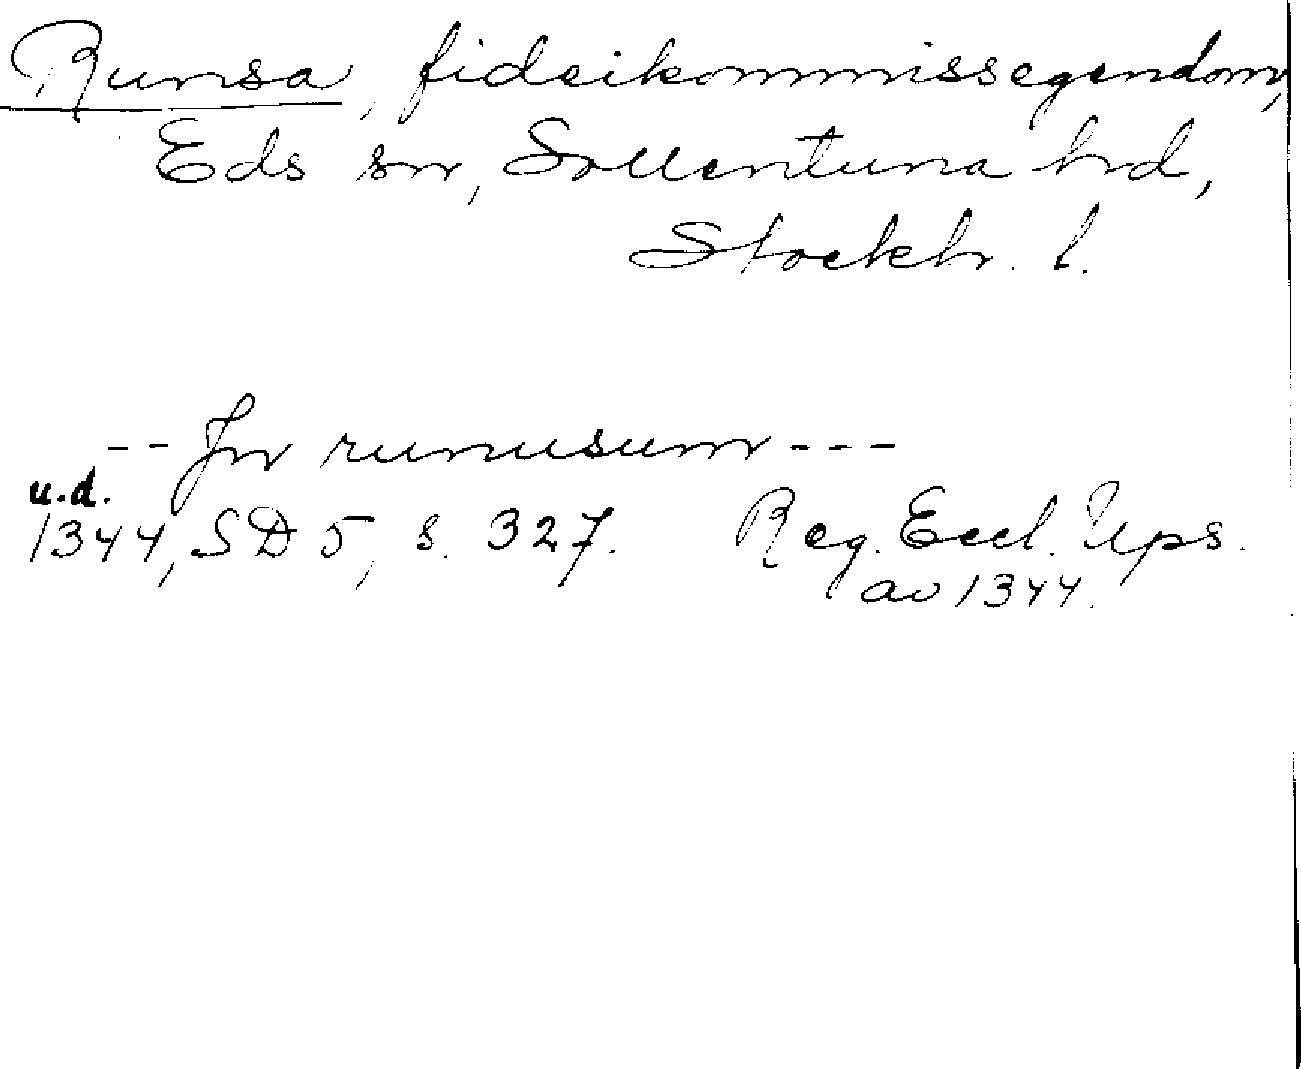 Runsa, fideikommissegendom,
Eds sn, Sollentuna hd,
Stockh. l.
-- Jn runusum ---
u.d.
1344, SD 5, s. 327. Reg. Eccl. Ups.
av 1344.